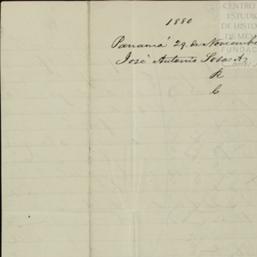 1880
Panamá 29 de Noviembre
José Antonio Sosa A.
R
C
CENTRO
ESTUDI
DE HISTO
DE MÉX
FUNDAC